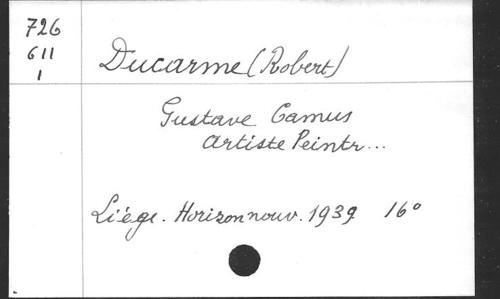 726
611
1
Ducarme (Robert)
Gustave Camus
Artiste Peintr...
Liége. Horizon nouv. 1939 16°